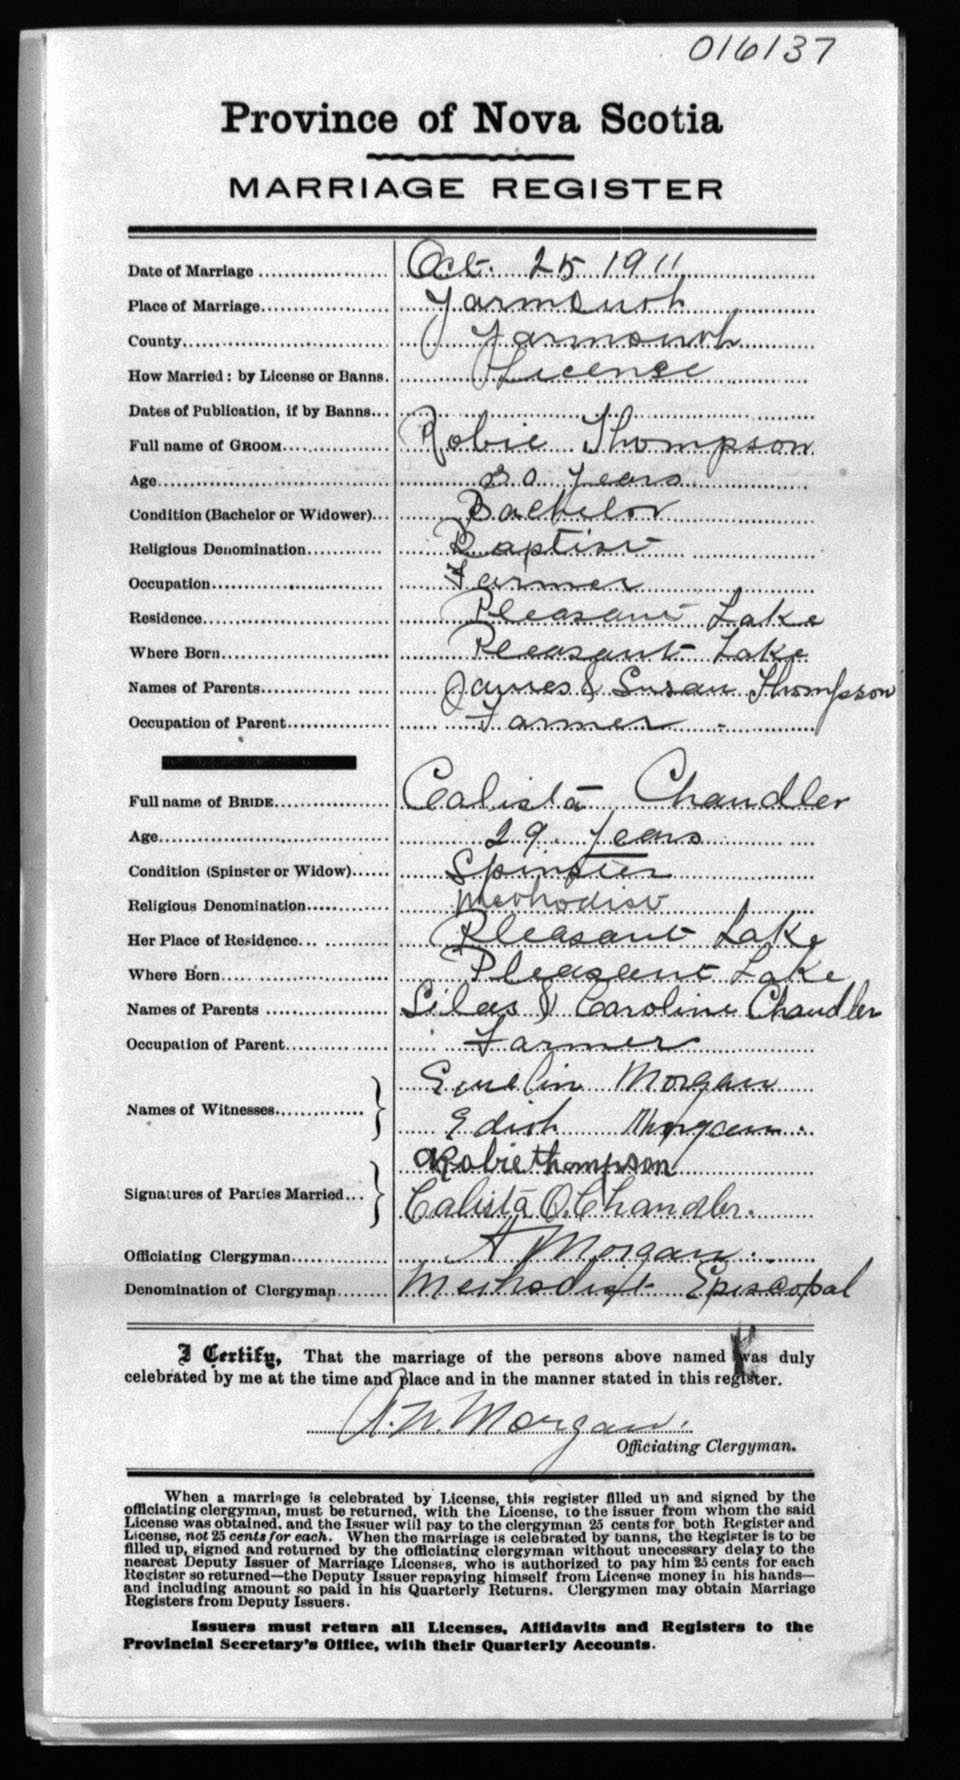 016137
Province of Nova Scotia
MARRIAGE REGISTER
Date of Marriage Oct. 25 1911
Place of Marriage Yarmouth
County Yarmouth
How Married: by License or Banns. License
Dates of Publication, if by Banns
Full name of GROOM Robie Thompson
Age 30 years
Condition (Bachelor or Widower) Bachelor
Religious Denomination Baptist
Occupation Farmer
Residence Pleasant Lake
Where Born Pleasant Lake
Names of Parents James & Susan Thompson
Occupation of Parent Farmer
Full name of BRIDE Calista Chandler
Age 29 years
Condition (Spinster or Widow) Spinster
Religious Denomination Methodist
Her Place of Residence Pleasant Lake
Where Born Pleasant Lake
Names of Parents Silas & Caroline Chandler
Occupation of Parent Farmer
Morgan
Names of Witnesses
Edith Morgan
Robie thompson
Signatures of Parties Married
Calista O. Chandler.
Officiating Clergyman A Morgan
Denomination of Clergyman Methodist Episcopal
I Certify, That the marriage of the persons above named was duly
celebrated by me at the time and place and in the manner stated in this register.
A. N. Morgan.
Officiating Clergyman.
When a marriage is celebrated by License, this register filled up and signed by the
officiating clergyman, must be returned, with the License, to the issuer from whom the said
License was obtained, and the Issuer will pay to the clergyman 25 cents for both Register and
License, not 25 cents for each. When the marriage is celebrated by banns, the Register is to be
filled up, signed and returned by the officiating clergyman without unnecessary delay to the
nearest Deputy Issuer of Marriage Licenses, who is authorized to pay him 25 cents for each
Register so returned—the Deputy Issuer repaying himself from License money in his hands—
and including amount so paid in his Quarterly Returns. Clergymen may obtain Marriage
Registers from Deputy Issuers.
Issuers must return all Licenses, Affidavits and Registers to the
Provincial Secretary's Office, with their Quarterly Accounts.